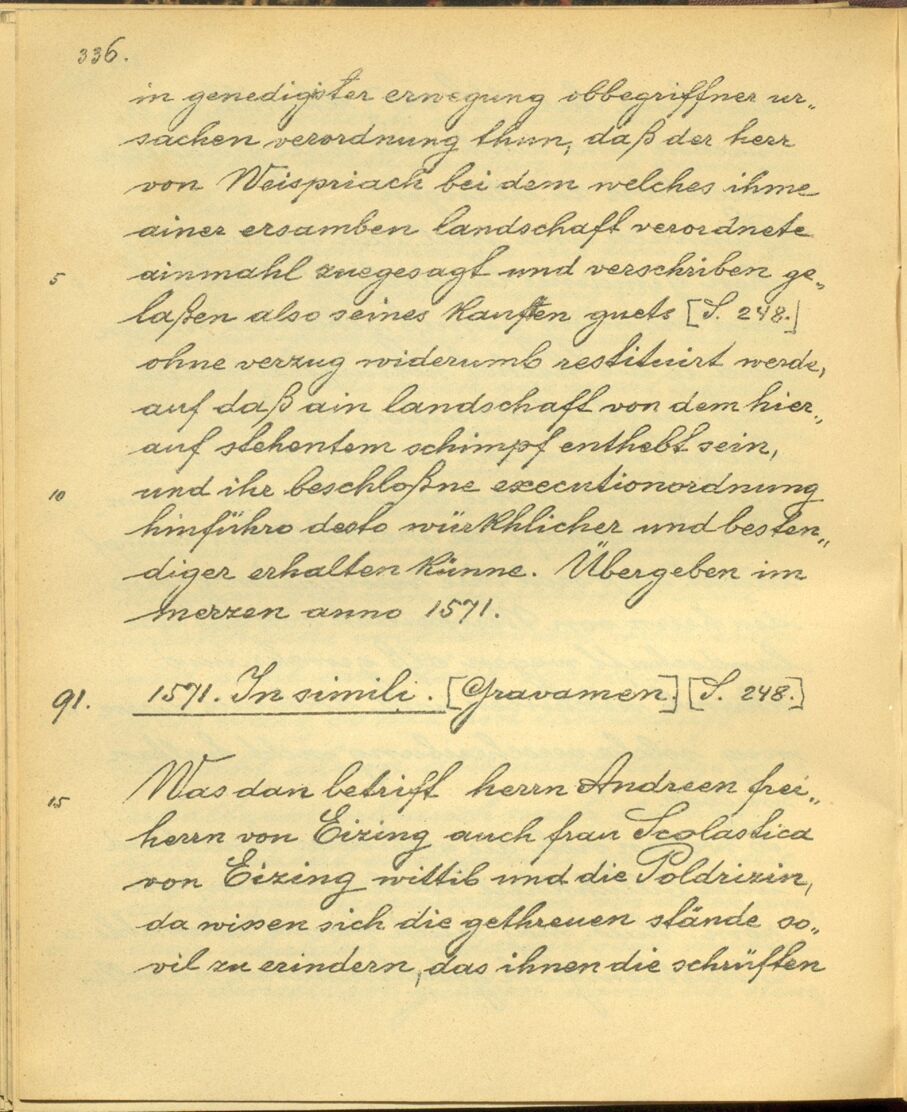 336.
in genedigister erwegung obbegriffner ur„
sachen verordnung thun, daß der herr
von Weispriach bei dem welches ihme
ainer ersamben landschaft verordnete
5 ainmahl zuegesagt und verschriben ge„
laßen also seines kauften guets [S. 248.]
ohne verzug widerumb restituirt werde,
auf daß ain landschaft von dem hier„
auf stehentem schimpf enthebt sein,
10 und ihr beschloßne executionordnung
hinführo desto würkhlicher und besten„
diger erhalten künne. Übergeben im
merzen anno 1571.
91. 1571. In simili. [Gravamen.] [S. 248.]
15 Was dan betrift herrn Andreen frei„
herrn von Eizing auch frau Scolastica
von Eizing wittib und die Poldrizin,
da wissen sich die gethreuen stände so„
vil zu erindern, das ihnen die schrüften